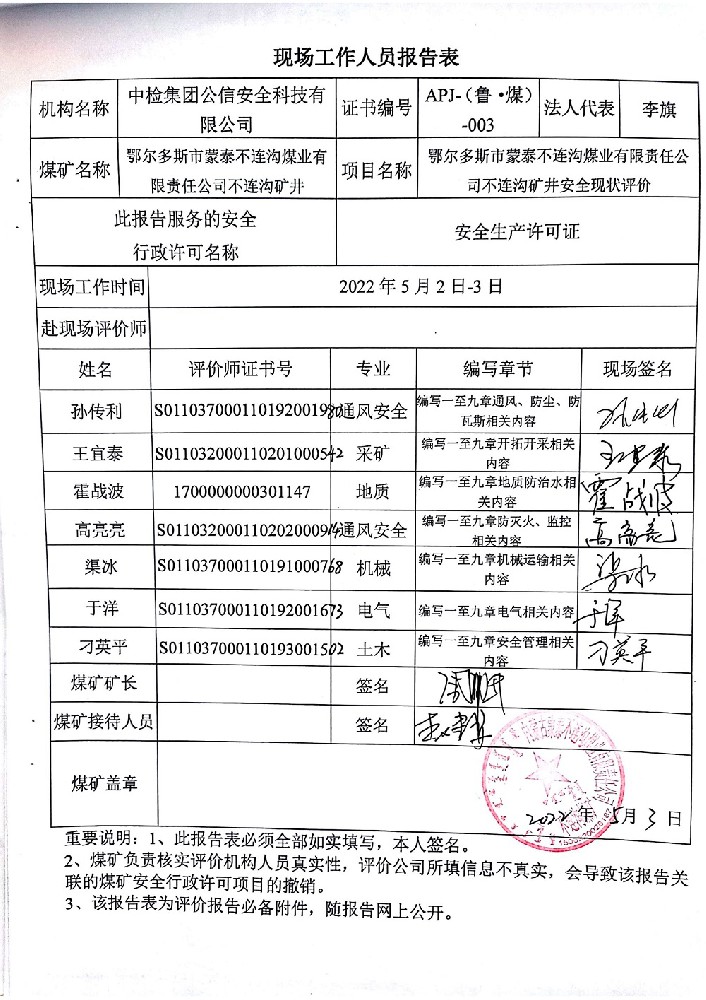 现场工作人员报告表
机构名称
中检集团公信安全科技有
限公司
证书编号
APJ-（鲁·煤）
-003
法人代表
李旗
煤矿名称
鄂尔多斯市蒙泰不连沟煤业有
限责任公司不连沟矿井
项目名称
鄂尔多斯市蒙泰不连沟煤业有限责任公
司不连沟矿井安全现状评价
此报告服务的安全
行政许可名称
安全生产许可证
现场工作时间
2022年5月2日-3日
赴现场评价师
姓名 评价师证书号 专业 编写章节 现场签名
孙传利 S011037000110192001980 通风安全
编写一至九章通风、防尘、防
瓦斯相关内容
王宜泰 S011032000110201000542 采矿
编写一至九章开拓开采相关
内容
王宜泰
霍战波 1700000000301147 地质
编写一至九章地质防治水相
关内容
霍战波
高亮亮 S011032000110202000914 通风安全
编写一至九章防灭火、监控
相关内容
高亮亮
渠冰 S011037000110191000768 机械
编写一至九章机械运输相关
内容
渠冰
于洋 S011037000110192001673 电气 编写一至九章电气相关内容 于洋
刁英平 S011037000110193001502 土木
编写一至九章安全管理相关
内容
刁英平
煤矿矿长 签名
煤矿接待人员 签名
煤矿盖章
2022年5月3日
重要说明：1、此报告表必须全部如实填写，本人签名。
2、煤矿负责核实评价机构人员真实性，评价公司所填信息不真实，会导致该报告关
联的煤矿安全行政许可项目的撤销。
3、该报告表为评价报告必备附件，随报告网上公开。